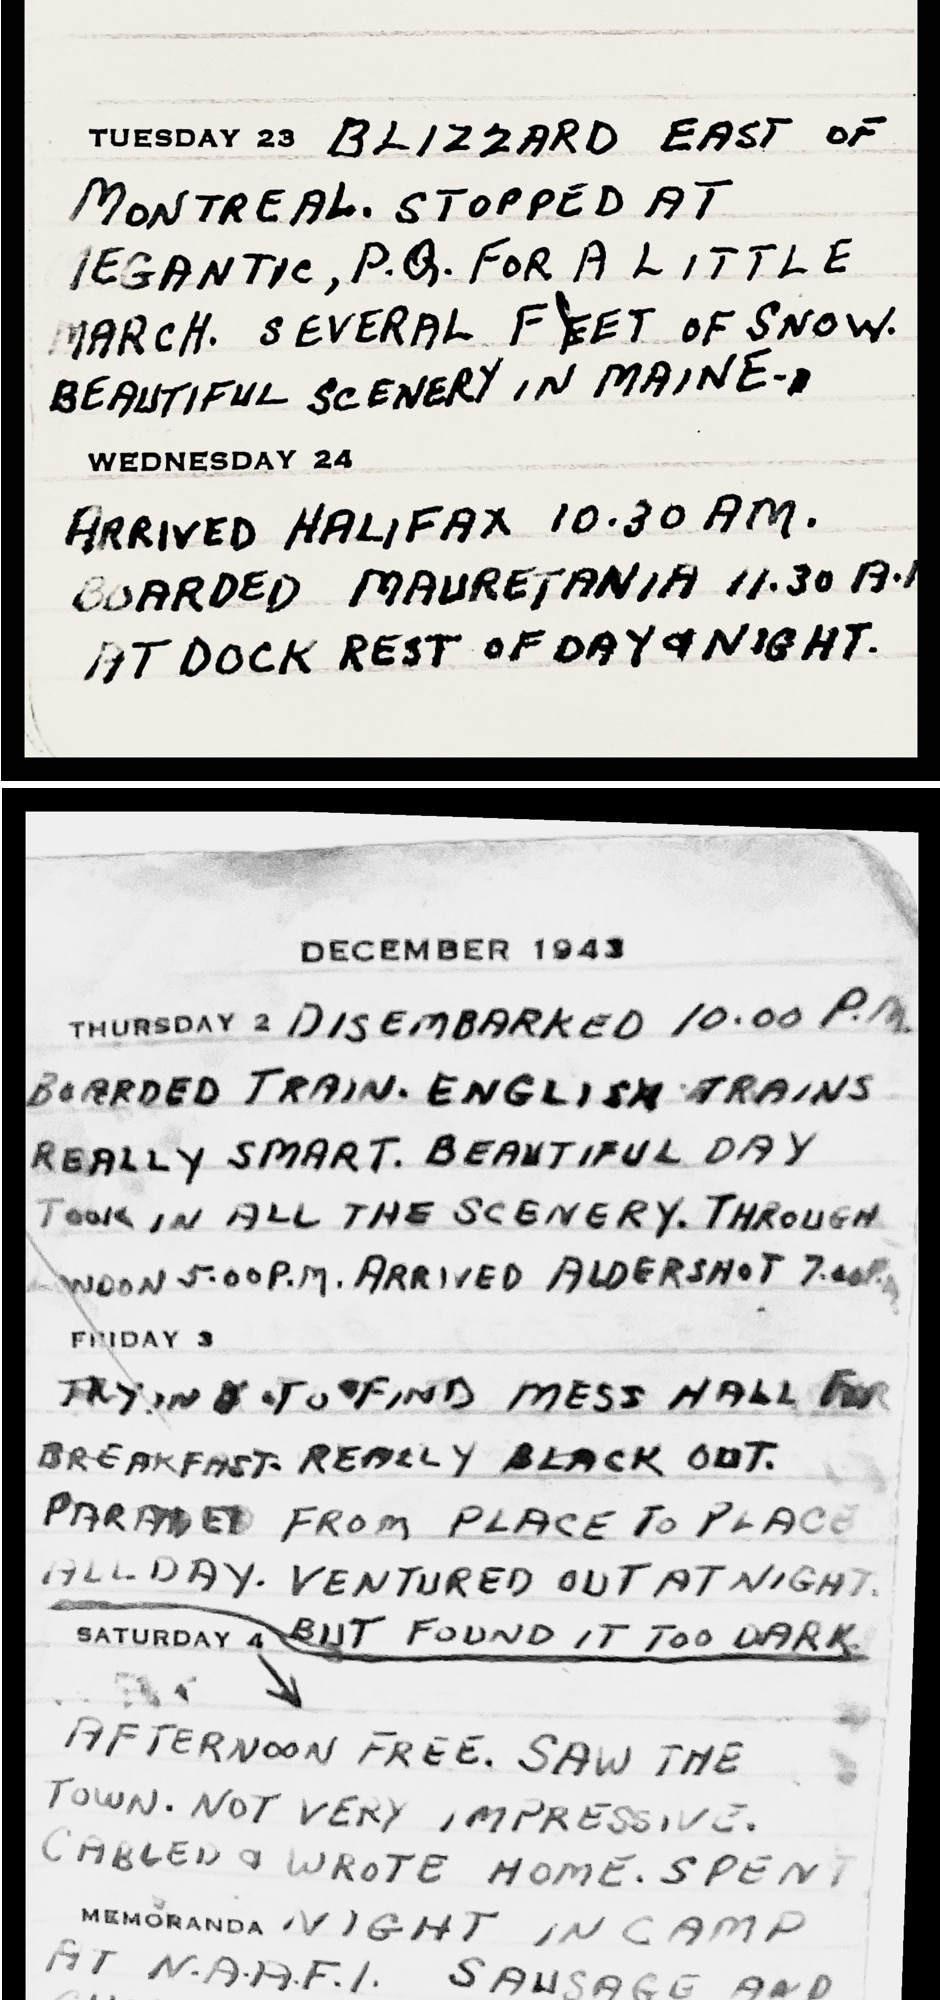 TUESDAY 23 BLIZZARD EAST OF
MONTREAL. STOPPED AT
MEGANTIC, P.Q. FOR A LITTLE
MARCH. SEVERAL FEET OF SNOW.
BEAUTIFUL SCENERY IN MAINE-
WEDNESDAY 24
ARRIVED HALIFAX 10.30 AM.
BOARDED MAURETANIA 11.30 A.M
AT DOCK REST OF DAY & NIGHT.
DECEMBER 1943
THURSDAY 2 DISEMBARKED 10.00 P.M.
BOARDED TRAIN. ENGLISH TRAINS
REALLY SMART. BEAUTIFUL DAY
TOOK IN ALL THE SCENERY. THROUGH
LONDON 5.00 P.M. ARRIVED ALDERSHOT 7.00 P.M
FRIDAY 3
TRYING TO FIND MESS HALL FOR
BREAKFAST. REALLY BLACK OUT.
PARADED FROM PLACE TO PLACE
ALL DAY. VENTURED OUT AT NIGHT.
SATURDAY 4 BUT FOUND IT TOO DARK.
AFTERNOON FREE. SAW THE
TOWN. NOT VERY IMPRESSIVE.
CABLED & WROTE HOME. SPENT
MEMORANDA NIGHT IN CAMP
AT N.A.A.F.I. SAUSAGE AND